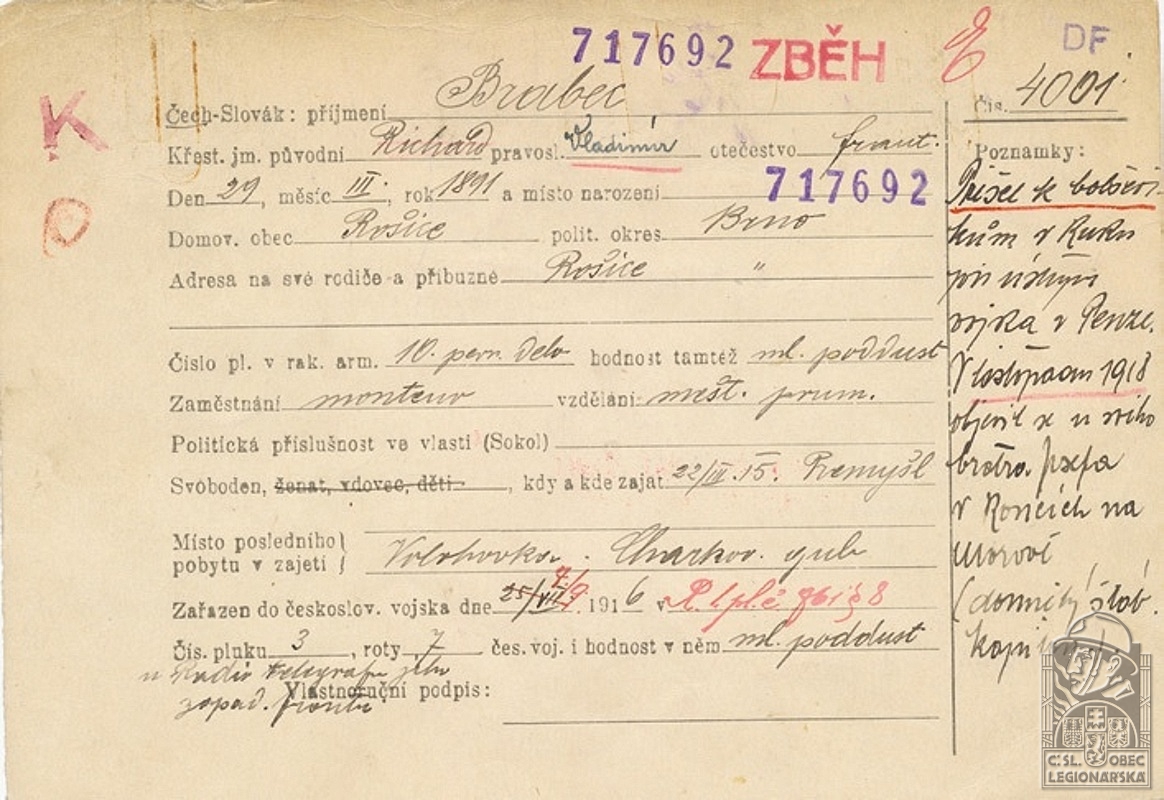 717692 ZBĚH DF
K
O
Čís. 4001
Čech-Slovák: příjmení Brabec
Křest. jm. původní Richard pravosl. Vladimír otečestvo frant.
Den 29, měsíc III, rok 1891 a místo narození 717692
Domov. obec Rosice polit. okres Brno
Adresa na své rodiče a příbuzné Rosice "
Číslo pl. v rak. arm. 10. pevn. delo hodnost tamtéž ml. poddust
Zaměstnání monteur vzdělání mešt. prum.
Politická příslušnost ve vlasti (Sokol)
Svoboden, ženat, vdovec, děti , kdy a kde zajat 22/III. 15. Přemyšl
Místo posledního
pobytu v zajetí Charkov. gub
Zařazen do českoslov. vojska dne 25/VII 1916 v
Čís. pluku 3, roty 7 čes. voj. i hodnost v něm ml. poddust
u Radio telegrafu
západ. fronta
Vlastnoruční podpis:
Poznamky:
Přišel k bolševi-
kům v
při
vojska v Penze.
V listopadu 1918
objevil se u svého
bratra Josefa
v na
Moravě
C.SL. OBEC
LEGIONÁRSKÁ